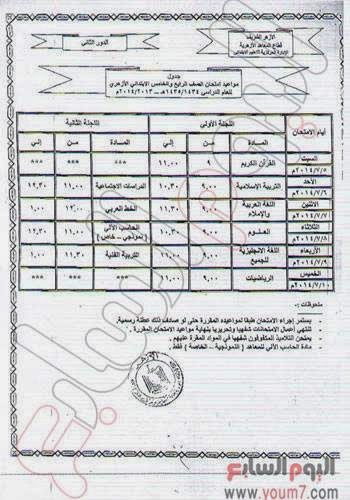 الأزهر الشريف
قطاع المعاهد الأزهرية
الإدارة المركزية للتعليم الابتدائى
الدور الثانى
جدول
مواعيد امتحان الصف الرابع والخامس الابتدائي الأزهري
للعام الدراسى ١٤٣٤/١٤٣٥هـ - ٢٠١٣/٢٠١٤م
أيام الامتحان اللجنة الأولى اللجنة الثانية
المــادة مـن إلى المــادة مـن إلى
السبت ٢٠١٤/٧/٥م القرآن الكريم ٩ ١١,٠٠ *** *** ***
الأحد ٢٠١٤/٧/٦م التربية الإسلامية ٩,٠٠ ١٠,٣٠ الدراسات الاجتماعية ١١,٠٠ ١٢,٣٠
الاثنين ٢٠١٤/٧/٧م اللغة العربية والإملاء ٩,٠٠ ١١,٠٠ الخط العربى ١٢,٠٠ ١,٠٠
الثلاثاء ٢٠١٤/٧/٨م العلـــوم ٩,٠٠ ١٠,٣٠ الحاسب الآلى (نموذجي - خاص) ١١,٠٠ ١٢,٣٠
الأربعاء ٢٠١٤/٧/٩م اللغة الانجليزية للجميع ٩,٠٠ ١٠,٣٠ التربية الفنية ١١,٠٠ ١,٠٠
الخميس ٢٠١٤/٧/١٠م الرياضيات ٩,٠٠ ١١,٠٠ *** *** ***
ملحوظات :-
يستمر إجراء الامتحان طبقا لمواعيده المقررة حتى لو صادف ذلك عطلة رسمية.
تنتهي أعمال الامتحانات شفهيا وتحريريا بنهاية مواعيد الامتحان المقررة .
يمتحن التلاميذ المكفوفون شفهيا في المواد المقررة عليهم .
مادة الحاسب الآلى للمعاهد ( النموذجية - الخاصة ) فقط .
اليوم السابع
www.youm7.com